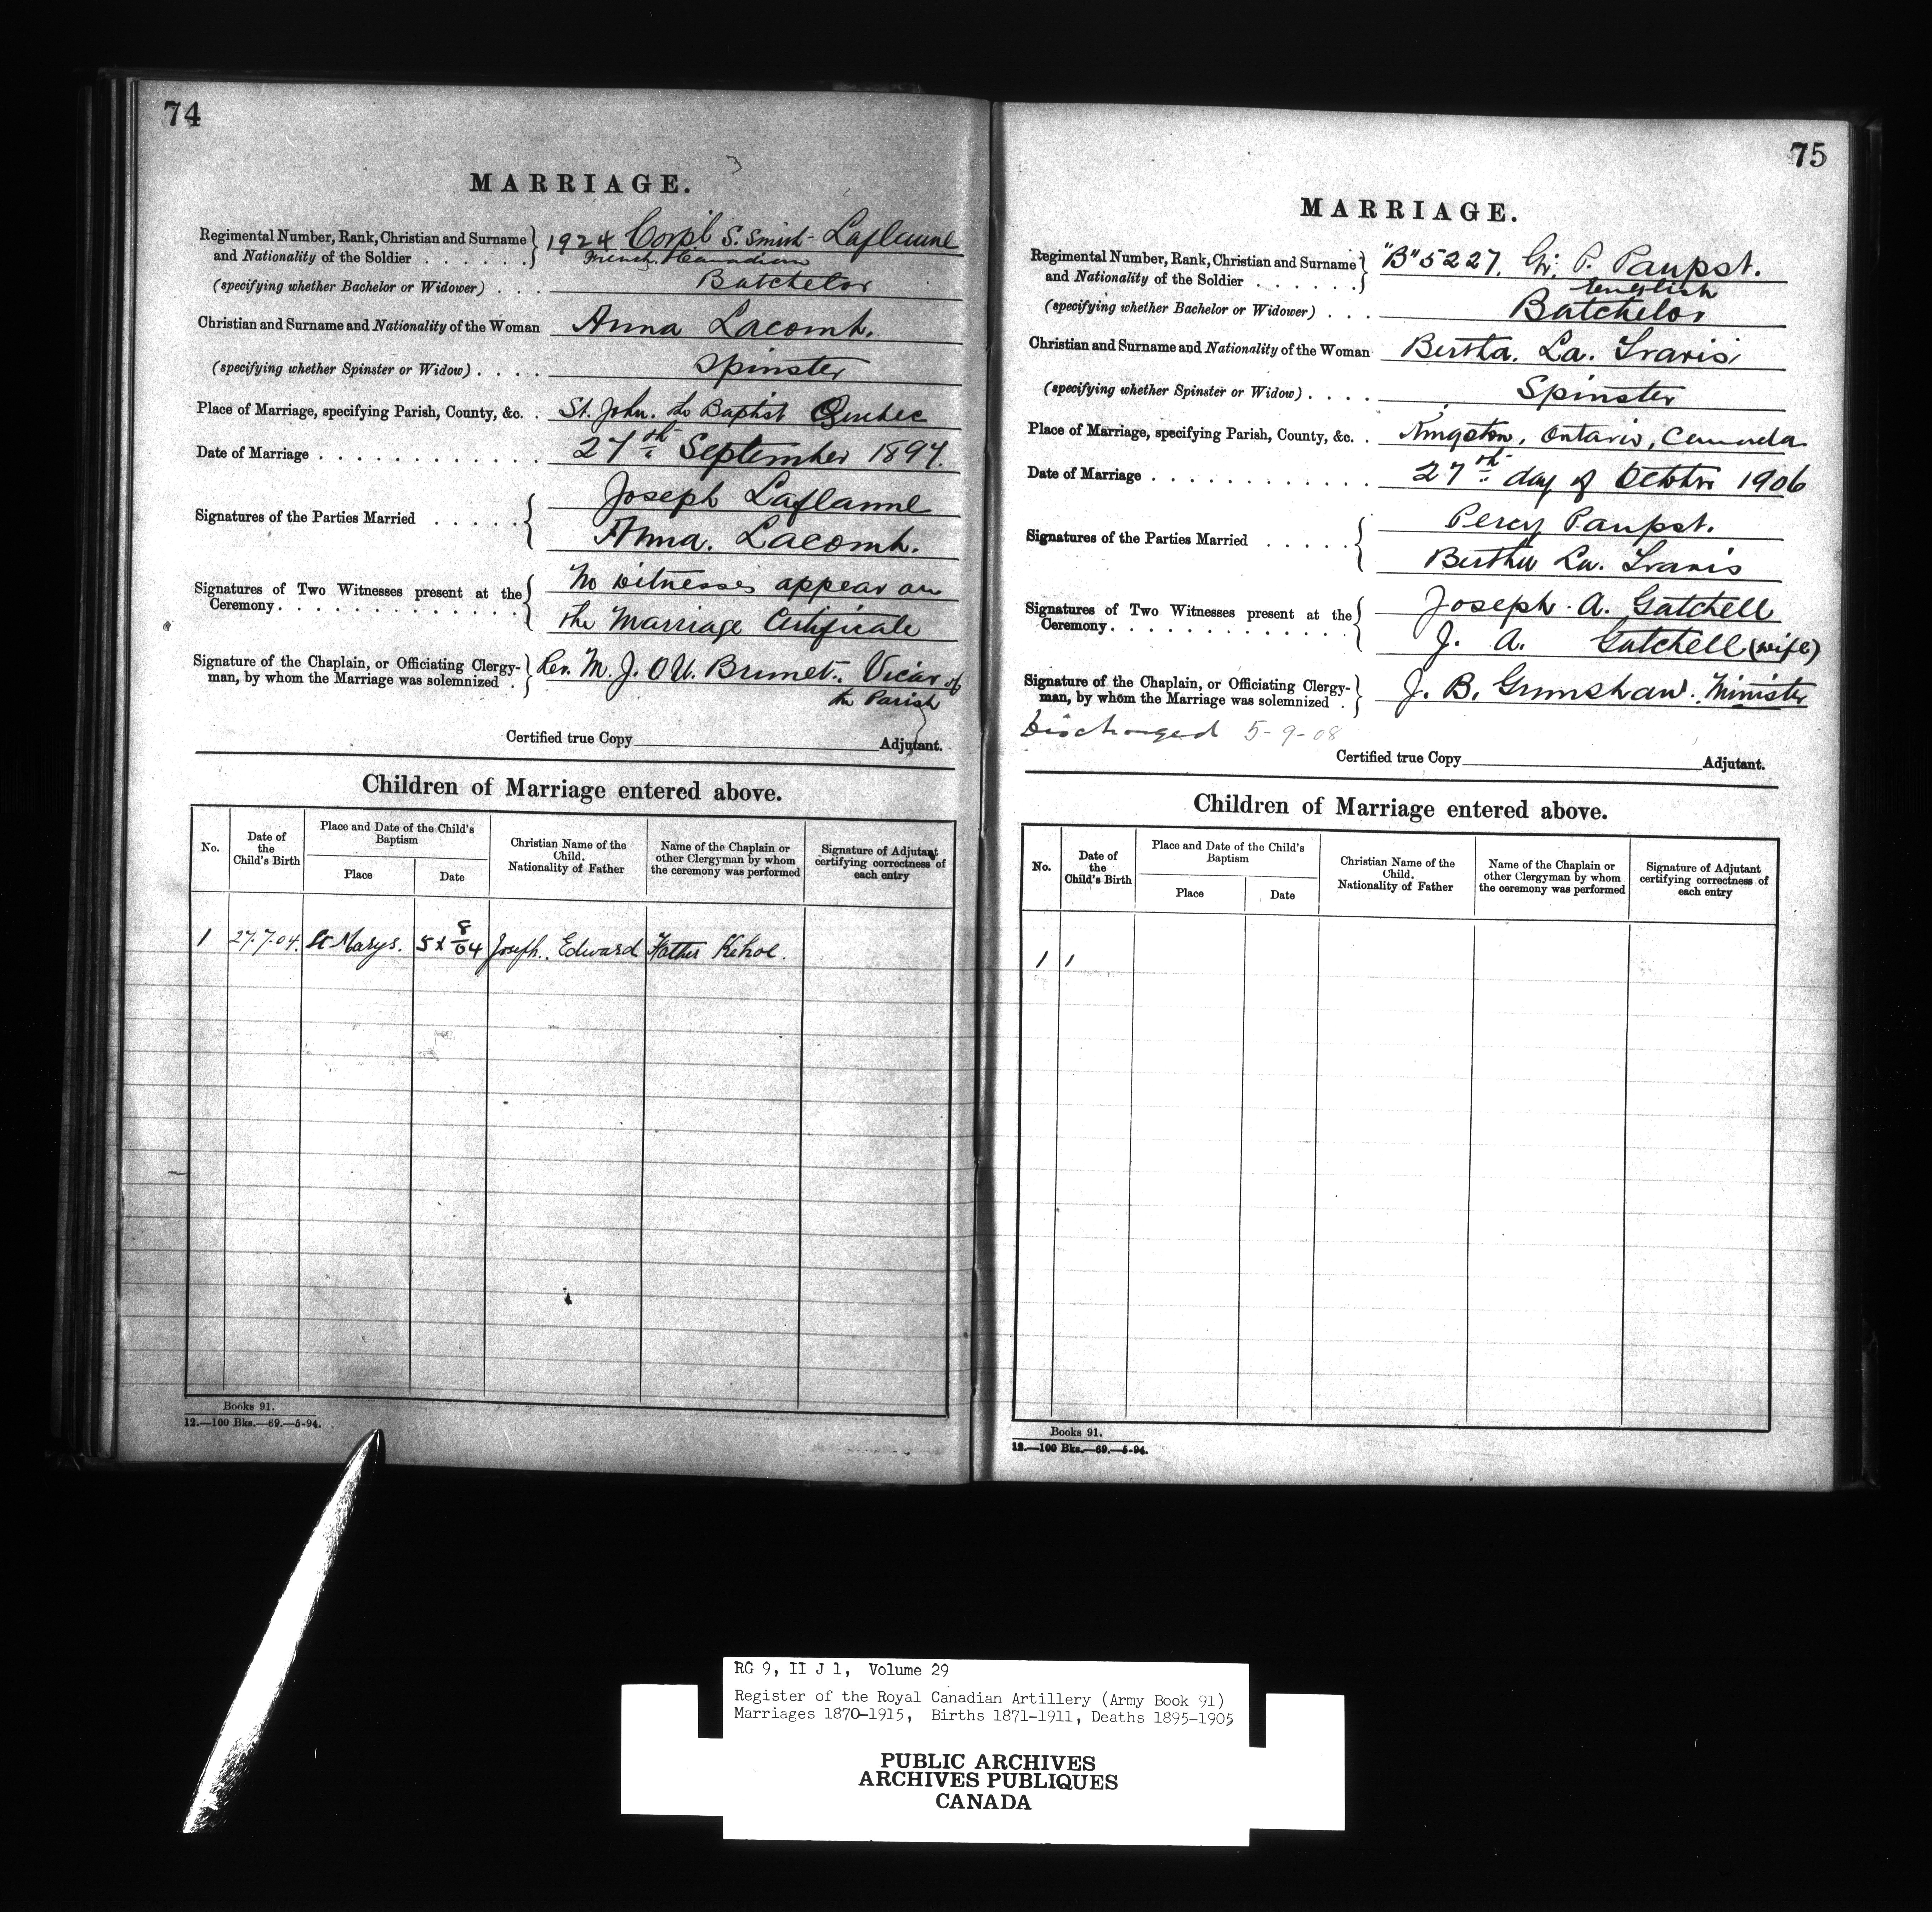 74
MARRIAGE.
Regimental Number, Rank, Christian and Surname and Nationality of the Soldier . . . . . . . 1924 Corpl S. Smith - Laflamme
French Canadian
(specifying whether Bachelor or Widower) . . . Batchelor
Christian and Surname and Nationality of the Woman Anna Lacomb.
(specifying whether Spinster or Widow) . . . . Spinster
Place of Marriage, specifying Parish, County, &c. . St. John. the Baptist Quebec
Date of Marriage . . . . . . . . . . . . . 27th September 1897.
Signatures of the Parties Married . . . . . Joseph Laflamme
Anna. Lacomb.
Signatures of Two Witnesses present at the Ceremony. . . . . . . . . . . . . . No witnesses appear on
the Marriage Certificate
Signature of the Chaplain, or Officiating Clergy-man, by whom the Marriage was solemnized . Rev. M. J. O U. Brunet. Vicar of
the Parish
Certified true Copy Adjutant.
Children of Marriage entered above.
No. Date of the Child's Birth Place and Date of the Child's Baptism Place Date Christian Name of the Child. Nationality of Father Name of the Chaplain or other Clergyman by whom the ceremony was performed Signature of Adjutant certifying correctness of each entry
1 27.7.04. St Marys. 8/04 Joseph. Edward Father Kehoe.
Books 91.
12.—100 Bks.—69.—5-94.
75
MARRIAGE.
Regimental Number, Rank, Christian and Surname and Nationality of the Soldier . . . . . . . "B" 5227. Gr. P. Paupst.
English
(specifying whether Bachelor or Widower) . . . Batchelor
Christian and Surname and Nationality of the Woman Bertha. La. Travis
(specifying whether Spinster or Widow) . . . . Spinster
Place of Marriage, specifying Parish, County, &c. . Kingston, Ontario, Canada
Date of Marriage . . . . . . . . . . . . 27th day of October 1906
Signatures of the Parties Married . . . . . Percy Paupst.
Bertha La. Travis
Signatures of Two Witnesses present at the Ceremony. . . . . . . . . . . . . . Joseph. A. Gatchell
J. A. Gatchell (wife)
Signature of the Chaplain, or Officiating Clergy-man, by whom the Marriage was solemnized . J. B. Grimshaw. Minister
Discharged 5-9-08
Certified true Copy Adjutant.
Children of Marriage entered above.
No. Date of the Child's Birth Place and Date of the Child's Baptism Place Date Christian Name of the Child. Nationality of Father Name of the Chaplain or other Clergyman by whom the ceremony was performed Signature of Adjutant certifying correctness of each entry
1
Books 91.
12.—100 Bks.—69.—5-94.
RG 9, II J 1, Volume 29
Register of the Royal Canadian Artillery (Army Book 91)
Marriages 1870-1915, Births 1871-1911, Deaths 1895-1905
PUBLIC ARCHIVES
ARCHIVES PUBLIQUES
CANADA